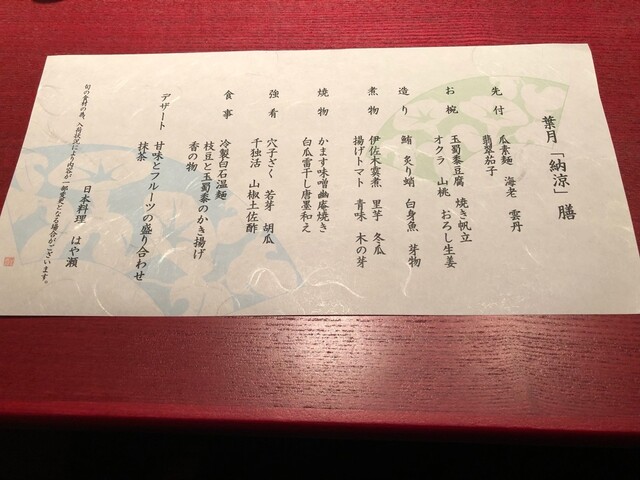 葉月「納涼」膳
先付
瓜素麺 海老 雲丹
翡翠茄子
お椀
玉蜀黍豆腐 焼き帆立
オクラ 山桃 おろし生姜
造り
鮪 炙り蛸 白身魚 芽物
煮物
伊佐木霙煮 里芋 冬瓜
揚げトマト 青味 木の芽
焼物
かます味噌幽庵焼き
白瓜雷干し唐墨和え
強肴
穴子ざく 若芽 胡瓜
千独活 山椒土佐酢
食事
冷製白石温麺
枝豆と玉蜀黍のかき揚げ
香の物
デザート
甘味とフルーツの盛り合わせ
抹茶
日本料理 はや瀬
旬の食材の為、入荷状況により内容が一部変更となる場合がございます。